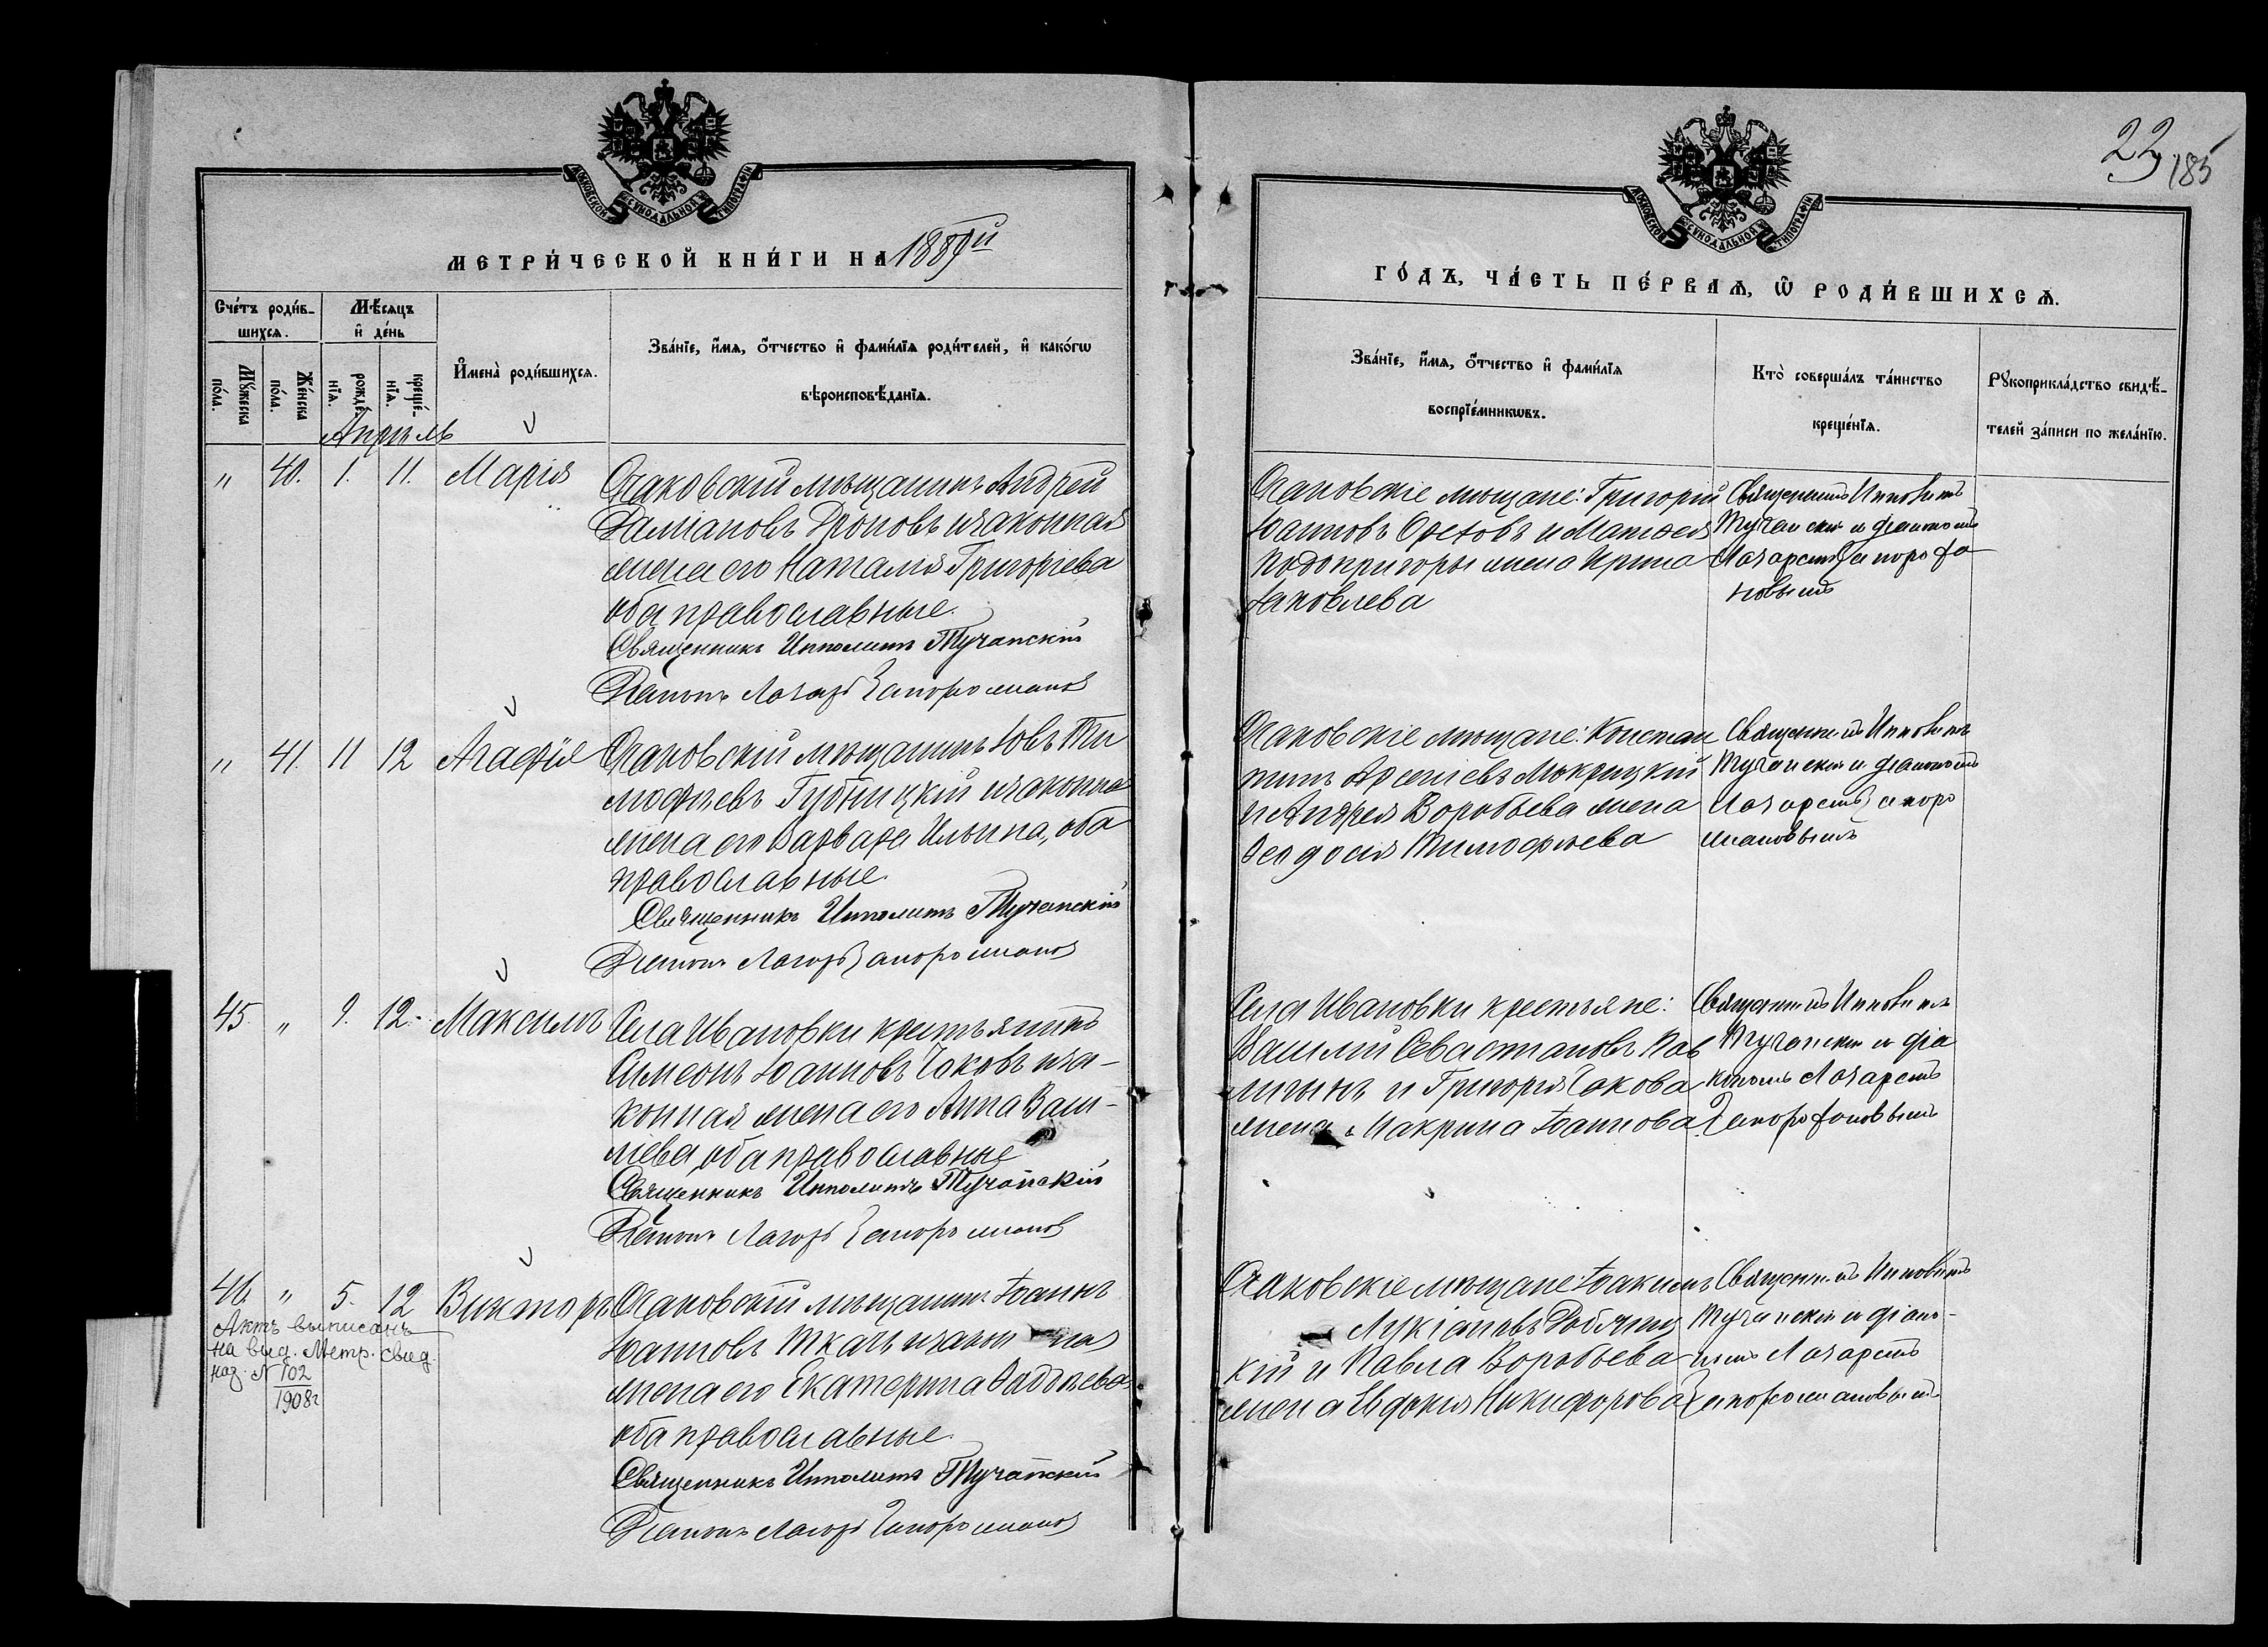 23
185
МОСКОВСКОЙ СѴНОДАЛЬНОЙ ТИПОГРАФІИ
МЕТРИ́ЧЕСКОЙ КНИ́ГИ НА 1889й
Сче́тъ роди́в-
шихся.
Мѣ́сяцъ
и҆ де́нь
Мꙋ́жеска
по́ла.
Же́нска
по́ла.
рожде́
нїѧ.
креще́-
нїѧ.
И҆мена̀ роди́вшихсѧ.
Зва́нїе, и҆́мѧ, ѻ҆́тчество и҆ фами́лїѧ роди́телей, и҆ како́гѡ
вѣроисповѣ́данїѧ.
Апрѣль
" 40. 1. 11. Марія
Очаковскій мѣщанинъ Андрей
Даміановъ Дроновъ и законная
жена его Наталія Григоріева
оба православные.
Священникъ Ипполитъ Тучапскій
Діаконъ Лазарь Запорожановъ
" 41. 11 12 Агафія
Очаковскій мѣщанинъ Іовъ Ти
мофѣевъ Губницкій и законна
жена его Варвара Ильина, оба
православные.
Священникъ Ипполитъ Тучапскій
Діаконъ Лазарь Запорожановъ
45 " 9. 12. Максимъ
Села Ивановки крестьянинъ
Симеонъ Іоанновъ Чаковъ и за-
конная жена его Анна Васи-
ліева, оба православные
Священникъ Ипполитъ Тучапскій
Діаконъ Лазарь Запорожановъ
46 " 5. 12 Викторъ
Актъ выписанъ
на вид. Метр. свид.
наз. N 102
1908г
Очаковскій мѣщанинъ Іоаннъ
Іоанновъ Ткачъ и закон ная
жена его Екатерина Фаддѣева
оба православные.
Священникъ Ипполитъ Тучапскій
Діаконъ Лазарь Запорожановъ
МОСКОВСКОЙ СѴНОДАЛЬНОЙ ТИПОГРАФІИ
ГО́ДЪ, ЧА́СТЬ ПЕ́РВАѦ, Ѡ҆ РОДИ́ВШИХСѦ.
Зва́нїе, и҆́мѧ, ѻ҆́тчество и҆ фами́лїѧ
воспрїе́мникѡвъ.
Кто̀ соверша́лъ та́инство
креще́нїѧ.
Рꙋкоприкла́дство свидѣ́-
телей за́писи по жела́нїю.
Очаковскіе мѣщане: Григорій
Іоанновъ Орховъ и Матѳея
Подопригоры жена Ирина
Іаковлева
Священникъ Ипполитъ
Тучапскій и діакономъ
Лазаремъ Запорожа
новымъ
Очаковскіе мѣщане: Констан
тинъ Арсеніевъ Мокрицкій
и Андрея Воробьева жена
Ѳеодосія Тимофѣева
Священникъ Ипполитъ
Тучапскій и діакономъ
Лазаремъ Запоро
жановымъ
Села Ивановки крестьяне:
Василій Севастіановъ Пав
лигинъ и Григорія Чакова
жена Макрина Іоаннова.
Священникъ Ипполитъ
Тучапскій и діа
кономъ Лазаремъ
Запорожановымъ
Очаковскіе мѣщане Іоакимъ
Лукіановъ Робчин
кій и Павла Воробьева
жена Евдокія Никифорова
Священникъ Ипполитъ
Тучапскій и діако-
номъ Лазаремъ
Запорожановымъ